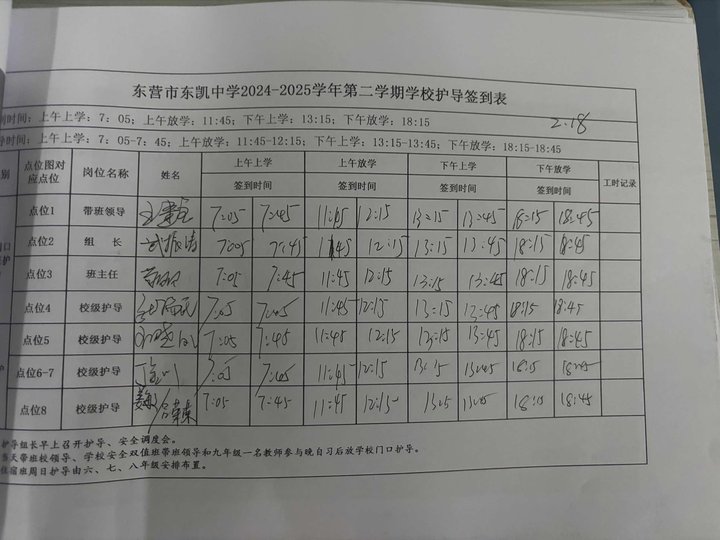 东营市东凯中学2024-2025学年第二学期学校护导签到表
到时间：上午上学：7：05；上午放学：11:45；下午上学：13:15；下午放学：18:15
2.18
导时间：上午上学：7：05-7：45；上午放学：11:45-12:15；下午上学：13:15-13:45；下午放学：18:15-18:45
别 点位图对应点位 岗位名称 姓名 上午上学 上午放学 下午上学 下午放学 工时记录
签到时间 签到时间 签到时间 签到时间
点位1 带班领导 7:05 7:45 11:45 12:15 13:15 13:45 18:15 18:45
点位2 组 长 武振涛 7:05 7:45 11:45 12:15 13:15 13:45 18:15 18:45
点位3 班主任 7:05 7:45 11:45 12:15 13:15 13:45 18:15 18:45
点位4 校级护导 7:05 7:45 11:45 12:15 13:15 13:45 18:15 18:45
点位5 校级护导 7:05 7:45 11:45 12:15 13:15 13:45 18:15 18:45
点位6-7 校级护导 7:05 7:45 11:45 12:15 13:15 13:45 18:15 18:45
点位8 校级护导 7:05 7:45 11:45 12:15 13:15 13:45 18:15 18:45
护导组长早上召开护导、安全调度会。
当天带班校领导、学校安全双值班带班领导和九年级一名教师参与晚自习后放学校门口护导。
住宿班周日护导由六、七、八年级安排布置。